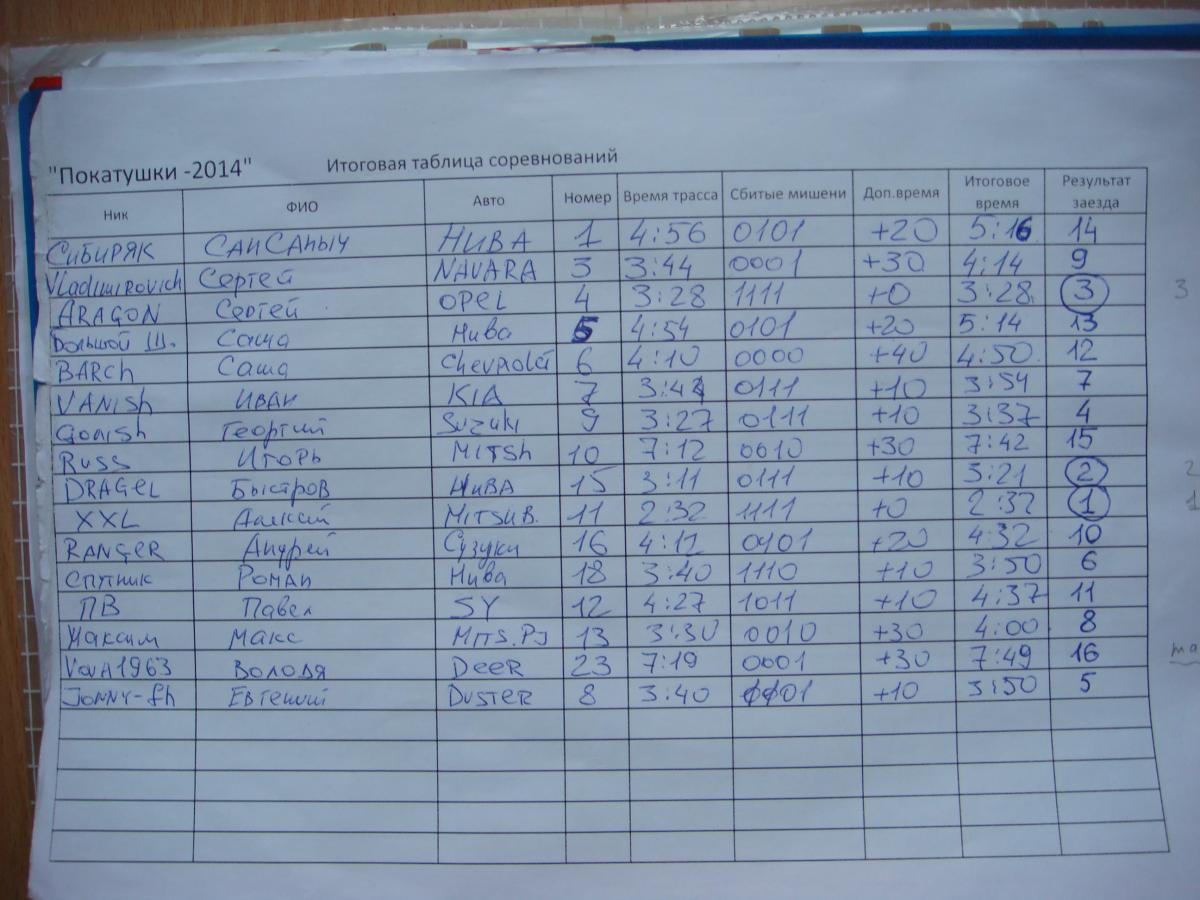 "Покатушки -2014" Итоговая таблица соревнований
Ник ФИО Авто Номер Время трасса Сбитые мишени Доп.время Итоговое время Результат заезда
Сибиряк САНСАНЫЧ НИВА 1 4:56 0101 +20 5:16 14
Vladimirovich Сергей NAVARA 3 3:44 0001 +30 4:14 9
ARAGON Сергей OPEL 4 3:28 1111 +0 3:28 3 3
Большой Ш. Саша Нива 5 4:54 0101 +20 5:14 13
BARCh Саша Chevrolet 6 4:10 0000 +40 4:50 12
VANISh Иван KIA 7 3:44 0111 +10 3:54 7
Gonish Георгий Suzuki 9 3:27 0111 +10 3:37 4
RUSS Игорь MITSh 10 7:12 0010 +30 7:42 15
DRAGEL Быстров НИВА 15 3:11 0111 +10 3:21 2 2
XXL Алексей MITSUB. 11 2:32 1111 +0 2:32 1 1
RANGER Андрей Сузуки 16 4:12 0101 +20 4:32 10
Спутник Роман Нива 18 3:40 1110 +10 3:50 6
ПВ Павел SY 12 4:27 1011 +10 4:37 11
Максим Макс MITS.PJ 13 3:30 0010 +30 4:00 8
VovA1963 Володя DEER 23 7:19 0001 +30 7:49 16
JONNY-fh Евгений DUSTER 8 3:40 01 +10 3:50 5